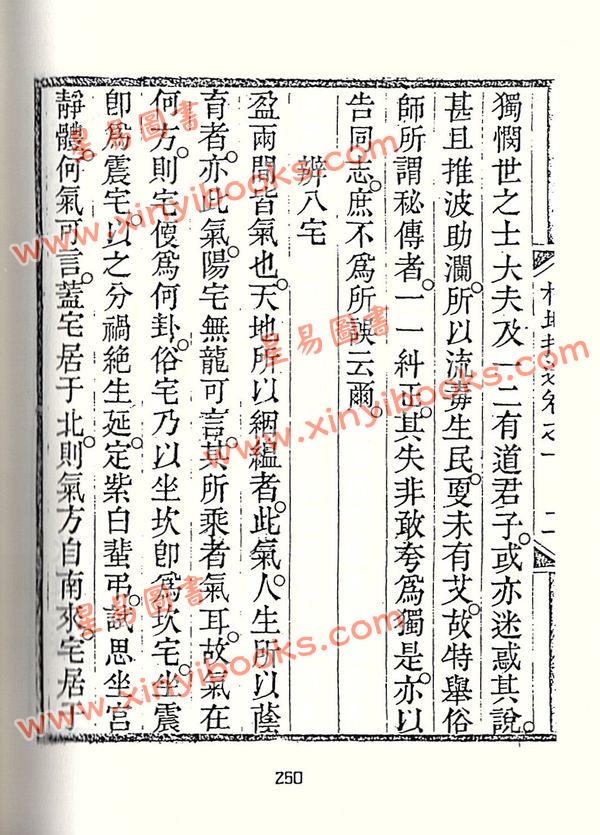 獨憫世之士大夫及一二有道君子。或亦迷惑其說。
甚且推波助瀾。所以流毒生民。更未有艾。故特舉俗
師所謂秘傳者。一一糾正。其失非敢夸爲獨是。亦以
告同志。庶不爲所誤云爾。
辨八宅
盈兩間皆氣也。天地所以絪縕者。此氣。人生所以蔭
育者。亦此氣。陽宅無龍可言。其所乘者氣耳。故氣在
何方。則宅便爲何卦。俗宅乃以坐坎卽爲坎宅。坐震
卽爲震宅。以之分禍絕生延。定紫白蜚弔。試思坐宮
靜體。何氣可言。蓋宅居于北。則氣方自南來。宅居于
卷之一
二
250
星易圖書
www.xinyibooks.com
星易圖書
www.xinyibooks.com
星易圖書
www.xinyibooks.com